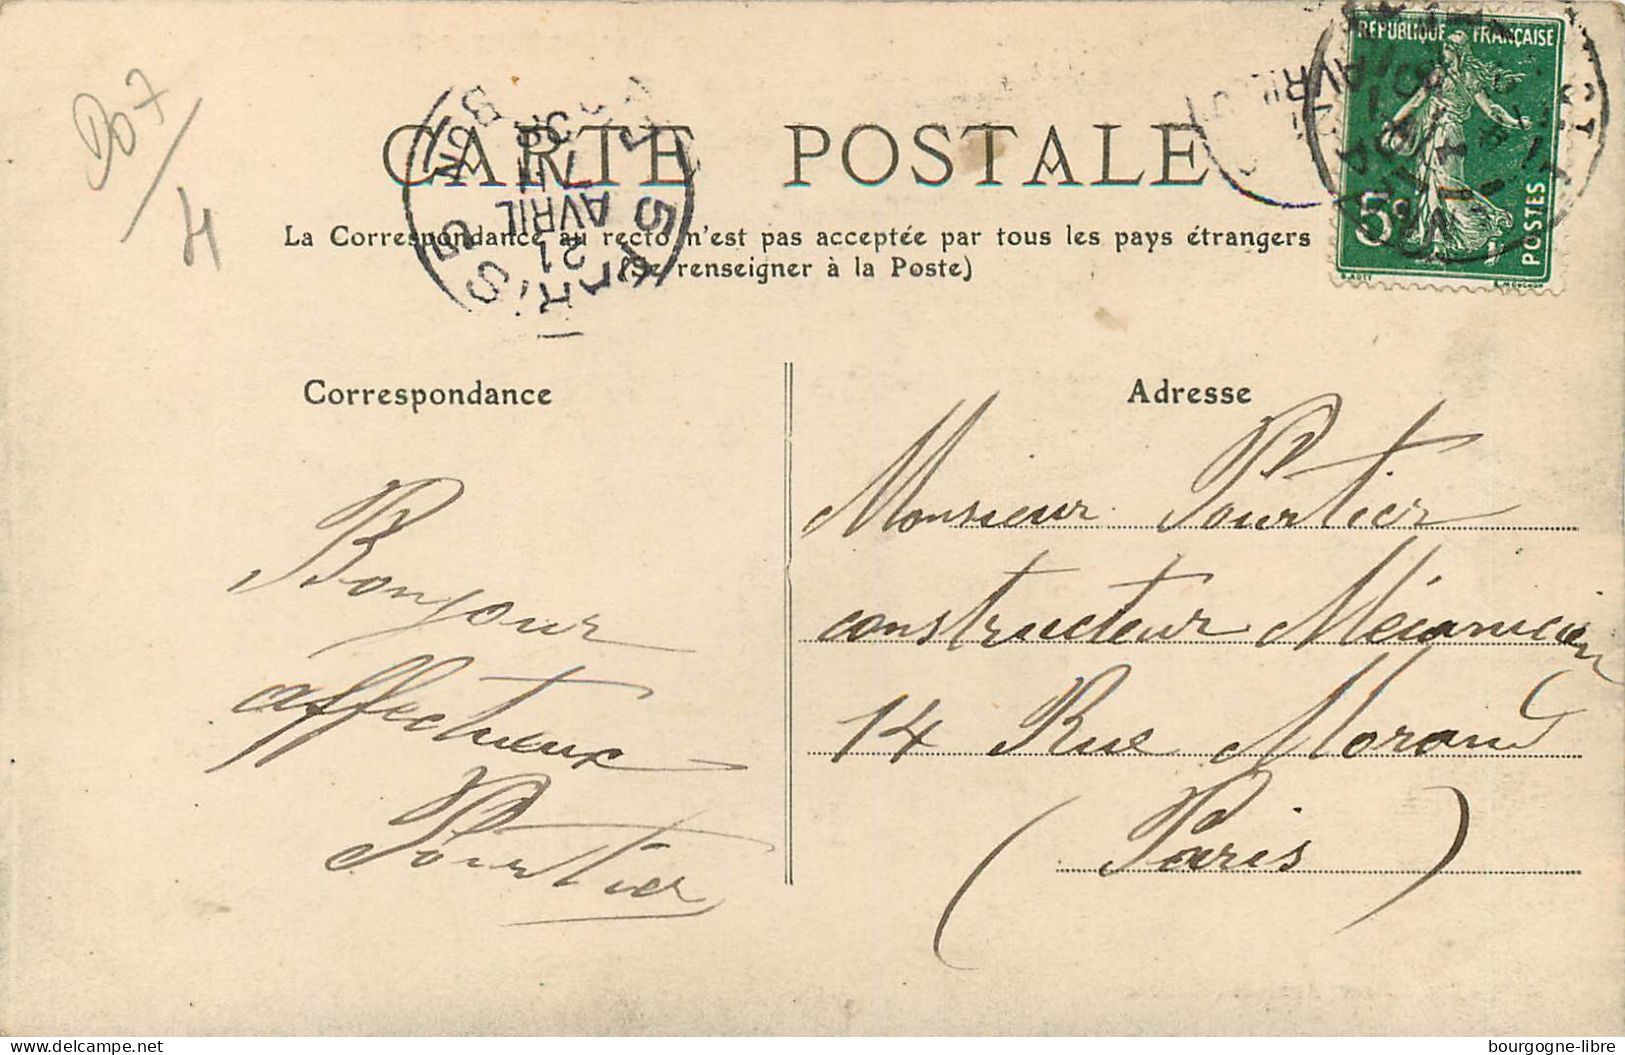 RÉPUBLIQUE FRANÇAISE
5c
POSTES
D07
/4
CARTE POSTALE
La Correspondance au recto n'est pas acceptée par tous les pays étrangers
(Se renseigner à la Poste)
PARIS
21
AVRIL
AVRIL
Correspondance
Bonjour
affectueux
Pourtier
Adresse
Monsieur Pourtier
constructeur Mécanicien
14 Rue Morand
(Paris)
delcampe.net
bourgogne-libre